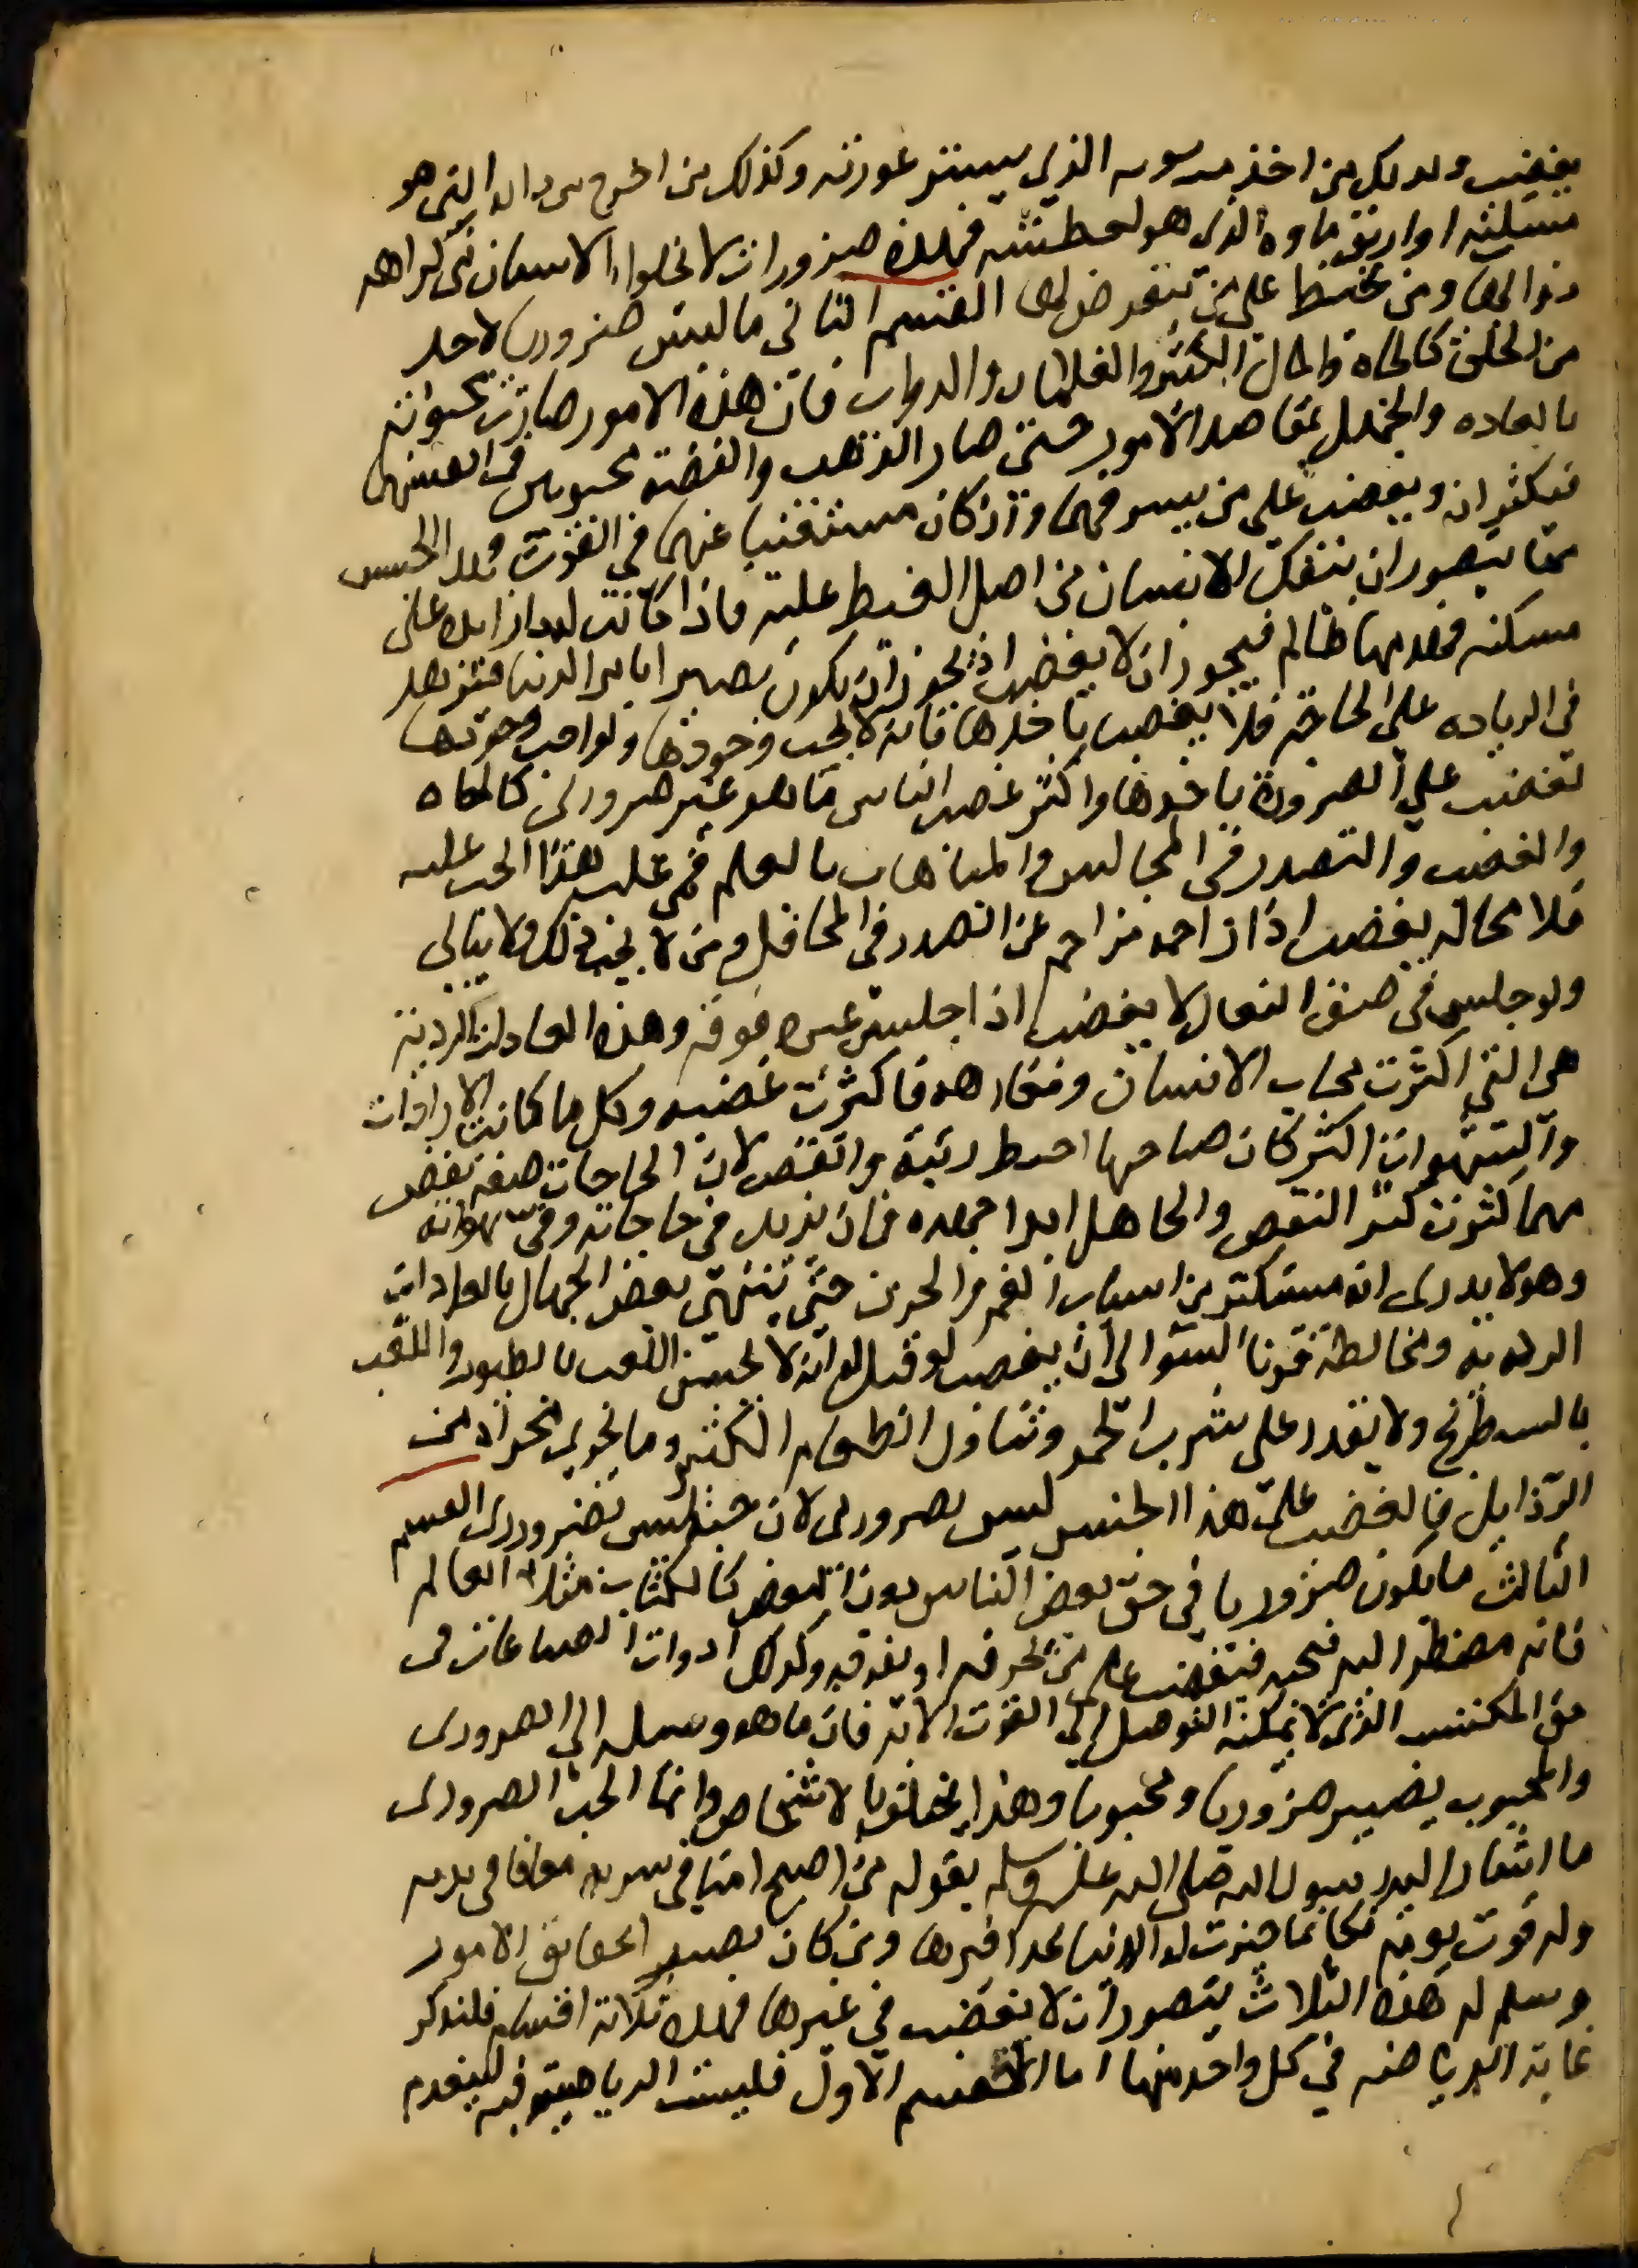 يغضب وكذلك من اخذ منه ثوبه الذي يستر عورته وكذلك من اخرج من داره التي هو
مسكنه او اريق ماوه الذي هو لعطشه فهذه ضرورات لا يخلوا الانسان في كراهه
زوالها ومن غيظ على من يتعرض لها القسم الثاني ما ليس ضروريا لاحد
من الخلق كالجاه والمال الكثير والغلمان والدواب فان هذه الامور صارت محبوبه
بالعاده والجهل بمقاصد الامور حتى صار الذهب والفضه محبوبين في انفسهما
فيكثران ويغضب على من يسرقهما وان كان مستغنيا عنهما في القوت فهذا الجنس
مما يتصور ان ينفك الانسان من اصل الغيظ عليه فاذا كانت له دار زايده على
مسكنه فهدمها ظالم فيجوز ان لا يغضب اذ يجوز ان يكون بصيرا بامر الدنيا فيزهد
في الزياده على الحاجه فلا يغضب باخذها فانه لا يحب وجودها ولو احب وجودها
لغضب على الضروره باخذها واكثر غضب الناس ما هو غير ضروري كالجاه
والغضب والتصدر في المجالس والمباهات بالعلم فمن غلب هذا الحب عليه
فلا محاله يغضب اذا زاحمه مزاحم عن التصدر في المحافل ومن لا يحب ذلك ولا يبالي
ولو جلس في صف النعال لا يغضب اذا جلس غيره فوقه وهذه العادات الرديه
هي التي اكثرت محاب الانسان ومكارهه فاكثرت غضبه وكل ما كانت الارادات
والشهوات اكثر كان صاحبها احط رتبة وانقص لان الحاجات صفه نقص
مهما كثرت كثر النقص والجاهل ابدا جهده في ان يزيد في حاجاته وفي شهواته
وهو لا يدري انه مستكثر من اسباب الغم والحزن حتى ينتهي بعض الجهال بالعادات
الرديه ومخالطة قرنا السوا الى ان يغضب لو قيل له انه لا يحسن اللعب بالطيور واللعب
بالسطرنج ولا يقدر على شرب الخمر وتناول الطعام الكثير وما يجري مجراه من
الرذايل فالغضب على هذا الجنس ليس بضروري لان حبه ليس بضروري القسم
الثالث ما يكون ضروريا في حق بعض الناس دون البعض كالكتاب مثلا العالم
فانه مضطر اليه فيحبه فيغضب على من يحرقه او يغرقه وكذلك ادوات الصناعات في
حق المكتسب الذي لا يمكنه التوصل الى القوت الا به فان ما هو وسيله الى الضروري
والمحبوب يصير ضروريا ومحبوبا وهذا يختلف بالاشخاص وانما الحب الضروري
ما اشار اليه رسول الله صلى الله عليه وسلم بقوله من اصبح امنا في سربه معافا في بدنه
وله قوت يومه فكانما حيزت له الدنيا بحذافيرها ومن كان بصيرا بحقايق الامور
وسلم له هذه الثلاث يتصور ان لا يغضب في غيرها فهذه ثلاثة اقسام فلنذكر
غاية الرياضه في كل واحد منها اما القسم الاول فليست الرياضه فيه لينعدم